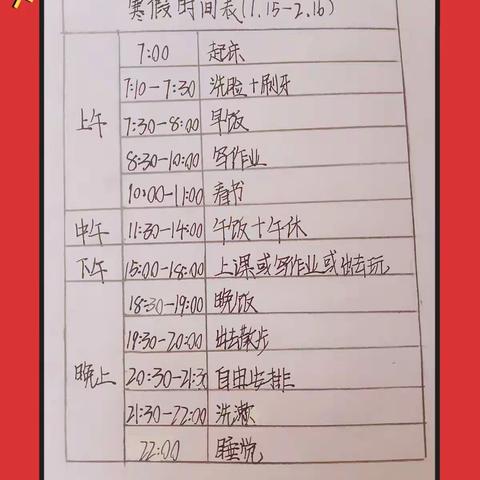 寒假时间表(1.15-2.16)
上午
7:00 起床
7:10-7:30 洗脸+刷牙
7:30-8:00 早饭
8:30-10:00 写作业
10:00-11:00 看书
中午 11:30-14:00 午饭+午休
下午 15:00-18:00 上课或写作业或出去玩
晚上
18:30-19:00 晚饭
19:30-20:00 出去散步
20:30-21:3 自由安排
21:30-22:00 洗漱
22:00 睡觉